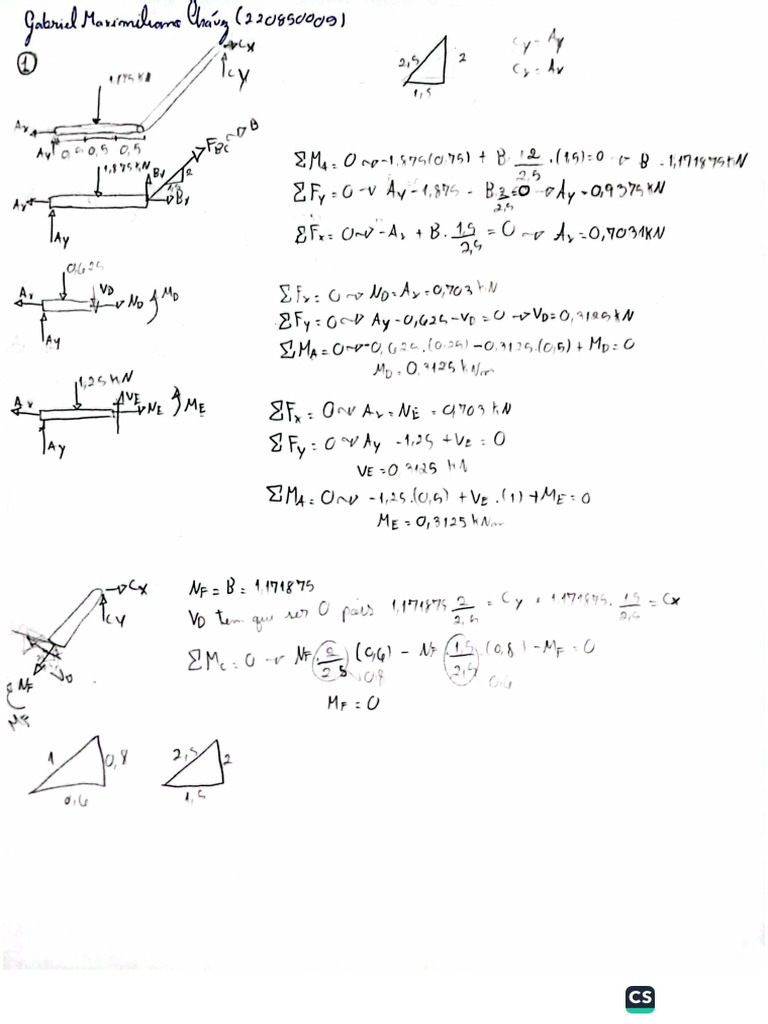 Gabriel Maximiliano Chávez (220850009)
1
Cx
Cy
1,875 kN
Ax
Ay 0,5 0,5 0,5
2,5 2
1,5
Cy = Ay
Cx = Ax
1,875 kN
FBC ~> B
By
2
1,5
Bx
Ax
Ay
ΣMA = 0 ~> -1,875(0,75) + B · 2/2,5 · (1,5) = 0 ~> B = 1,171875 kN
ΣFy = 0 ~> Ay - 1,875 - B · 2/2,5 = 0 ~> Ay = 0,9375 kN
ΣFx = 0 ~> -Ax + B · 1,5/2,5 = 0 ~> Ax = 0,7031 kN
0,625
Ax VD ND MD
Ay
ΣFx = 0 ~> ND = Ax = 0,703 kN
ΣFy = 0 ~> Ay - 0,625 - VD = 0 ~> VD = 0,3125 kN
ΣMA = 0 ~> -0,625 · (0,25) - 0,3125 · (0,5) + MD = 0
MD = 0,3125 kNm
1,25 kN
Ax VE NE ME
Ay
ΣFx = 0 ~> Ax = NE = 0,703 kN
ΣFy = 0 ~> Ay - 1,25 + VE = 0
VE = 0,3125 kN
ΣMA = 0 ~> -1,25 · (0,5) + VE · (1) + ME = 0
ME = 0,3125 kNm
Cx
Cy
NF
VD
MF
NF = B = 1,171875
VD tem que ser 0 pois 1,171875 2/2,5 = Cy e 1,171875 · 1,5/2,5 = Cx
ΣMC = 0 ~> NF · 2/2,5 (0,6) - NF · 1,5/2,5 · (0,8) - MF = 0
0,8 0,6
MF = 0
1 0,8
0,6
2,5 2
1,5
CS